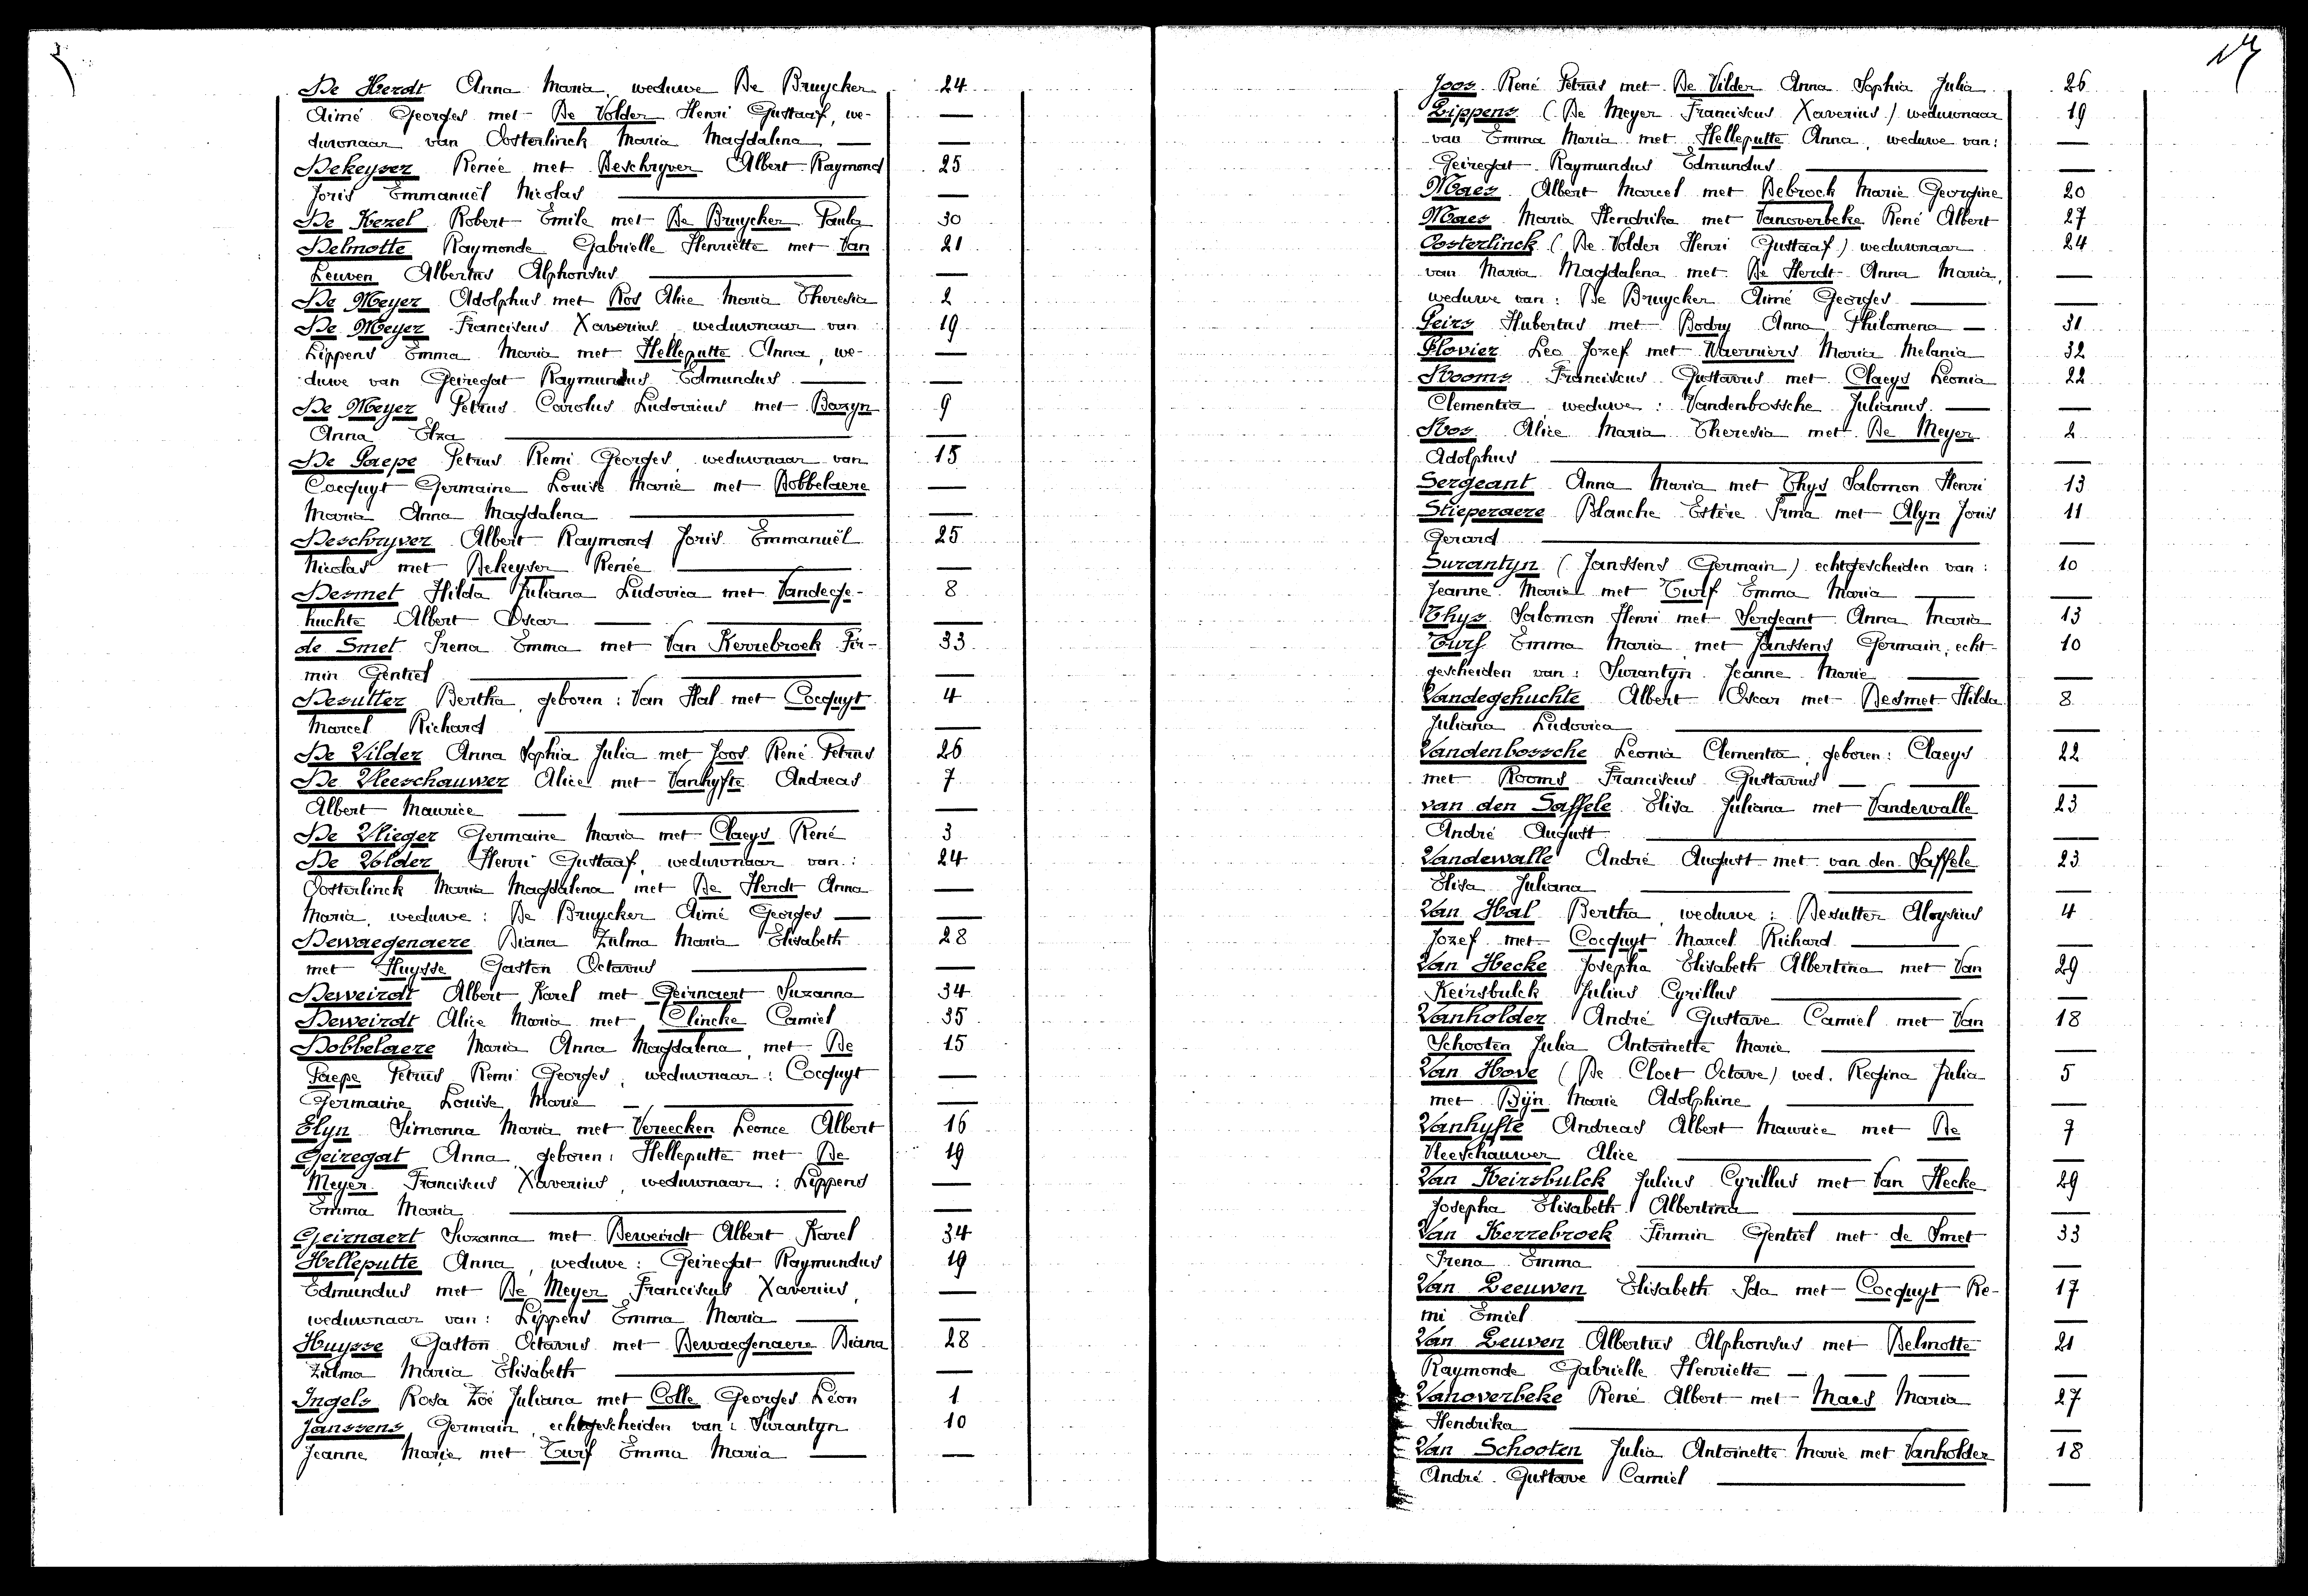 De Herdt Anna Maria, weduwe De Bruycker 24
Aimé Georges met De Volder Henri Gustaaf, we- —
duwnaar van Oosterlinck Maria Magdalena — —
Dekeyser Renée met Deschryver Albert Raymond 25
Joris Emmanuël Nicolas — —
De Kezel Robert Emile met De Bruycker Paula 30
Delmotte Raymonde Gabrielle Henriette met Van 21
Leuven Albertus Alphonsus — —
De Meyer Adolphus met Ros Alice Maria Theresia 2
De Meyer Franciscus Xaverius weduwnaar van 19
Lippens Emma Maria met Helleputte Anna, we- —
duwe van Geiregat Raymundus Edmundus — —
De Meyer Petrus Carolus Ludovicus met Bazyn 9
Anna Elza — —
De Paepe Petrus Remi Georges, weduwnaar van 15
Cocquyt Germaine Louise Marie met Dobbelaere —
Maria Anna Magdalena — —
Deschryver Albert Raymond Joris Emmanuël 25
Nicolas met Dekeyser Renée — —
Desmet Hilda Juliana Ludovica met Vandege- 8
huchte Albert Oscar — — —
de Smet Irena Emma met Van Kerrebroek Fir- 33
min Gentiel — — —
Desutter Bertha, geboren: Van Hal met Cocquyt 4
Marcel Richard — —
De Vilder Anna Sophia Julia met Joos René Petrus 26
De Vleeschauwer Alice met Vanhyfte Andreas 7
Albert Maurice — — —
De Vlieger Germaine Maria met Claeys René 3
De Volder Henri Gustaaf, weduwnaar van: 24
Oosterlinck Maria Magdalena met De Herdt Anna —
Maria, weduwe: De Bruycker Aimé Georges — —
Dewaegenaere Diana Zulma Maria Elisabeth 28
met Huysse Gaston Octavus — —
Deweirdt Albert Karel met Geirnaert Suzanna 34
Deweirdt Alice Maria met Clincke Camiel 35
Dobbelaere Maria Anna Magdalena, met De 15
Paepe Petrus Remi Georges, weduwnaar: Cocquyt —
Germaine Louise Marie — — —
Elyn Simonna Maria met Vereecken Léonce Albert 16
Geiregat Anna, geboren: Helleputte met De 19
Meyer Franciscus Xaverius, weduwnaar: Lippens —
Emma Maria — —
Geirnaert Suzanna met Deweirdt Albert Karel 34
Helleputte Anna, weduwe: Geiregat Raymundus 19
Edmundus met De Meyer Franciscus Xaverius, —
weduwnaar van: Lippens Emma Maria — —
Huysse Gaston Octavus met Dewaegenaere Diana 28
Zulma Maria Elisabeth — —
Ingels Rosa Zoë Juliana met Colle Georges Léon 1
Janssens Germain, echtgescheiden van: Surantyn 10
Jeanne Marie met Turf Emma Maria — —
Joos René Petrus met De Vilder Anna Sophia Julia 26
Lippens (De Meyer Franciscus Xaverius) weduwnaar 19
van Emma Maria met Helleputte Anna, weduwe van: —
Geiregat Raymundus Edmundus — —
Maes Albert Marcel met Debrock Marie Georgine 20
Maes Maria Hendrika met Vanoverbeke René Albert 27
Oosterlinck (De Volder Henri Gustaaf) weduwnaar 24
van Maria Magdalena met De Herdt Anna Maria, —
weduwe van: De Bruycker Aimé Georges — —
Peirs Hubertus met Bodry Anna Philomena — 31
Plovier Leo Jozef met Waerniers Maria Melania 32
Rooms Franciscus Gustavus met Claeys Leonia 22
Clementia, weduwe: Vandenbossche Julianus — —
Ros Alice Maria Theresia met De Meyer 2
Adolphus — —
Sergeant Anna Maria met Thys Salomon Henri 13
Stieperaere Blanche Estère Irma met Alyn Joris 11
Gerard — —
Surantyn (Janssens Germain) echtgescheiden van: 10
Jeanne Marie met Turf Emma Maria — —
Thys Salomon Henri met Sergeant Anna Maria 13
Turf Emma Maria met Janssens Germain, echt- 10
gescheiden van: Surantyn Jeanne Marie — —
Vandegehuchte Albert Oscar met Desmet Hilda 8
Juliana Ludovica — —
Vandenbossche Leonia Clementia, geboren: Claeys 22
met Rooms Franciscus Gustavus — — —
van den Saffele Elisa Juliana met Vandewalle 23
André August — —
Vandewalle André August met van den Saffele 23
Elisa Juliana — — —
Van Hal Bertha, weduwe: Desutter Aloysius 4
Jozef met Cocquyt Marcel Richard — —
Van Hecke Josepha Elisabeth Albertina met Van 29
Keirsbulck Julius Cyrillus — —
Vanholder André Gustave Camiel met Van 18
Schooten Julia Antoinette Marie — —
Van Hove (De Cloet Octave) wed. Regina Julia 5
met Bijn Marie Adolphine — —
Vanhyfte Andreas Albert Maurice met De 7
Vleeschauwer Alice — — —
Van Keirsbulck Julius Cyrillus met Van Hecke 29
Josepha Elisabeth Albertina — —
Van Kerrebroek Firmin Gentiel met de Smet 33
Irena Emma — —
Van Leeuwen Elisabeth Ida met Cocquyt Re- 17
mi Emiel — —
Van Leuven Albertus Alphonsus met Delmotte 21
Raymonde Gabrielle Henriette — — — —
Vanoverbeke René Albert met Maes Maria 27
Hendrika — —
Van Schooten Julia Antoinette Marie met Vanholder 18
André Gustave Camiel — —